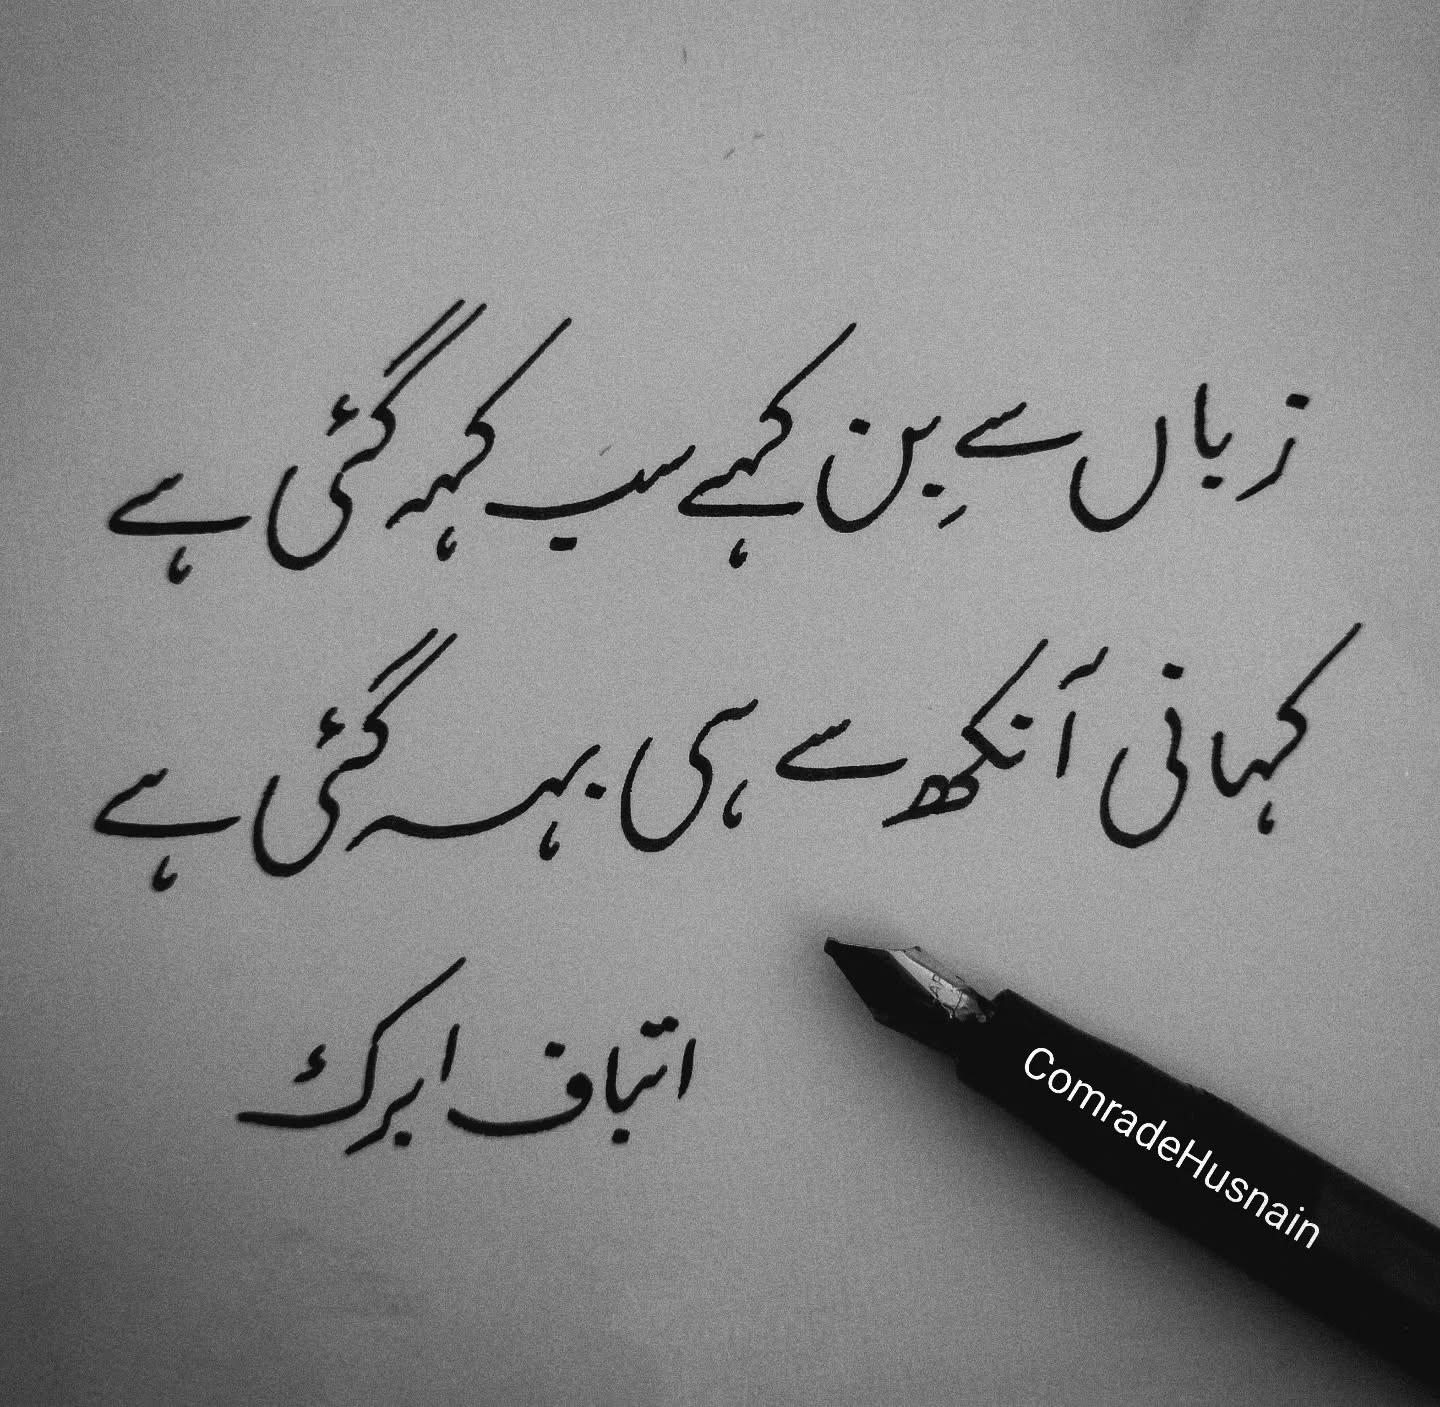 زباں سے بِن کہے سب کہہ گئی ہے
کہانی آنکھ سے ہی بہہ گئی ہے
اتباف ابرک
ComradeHusnain